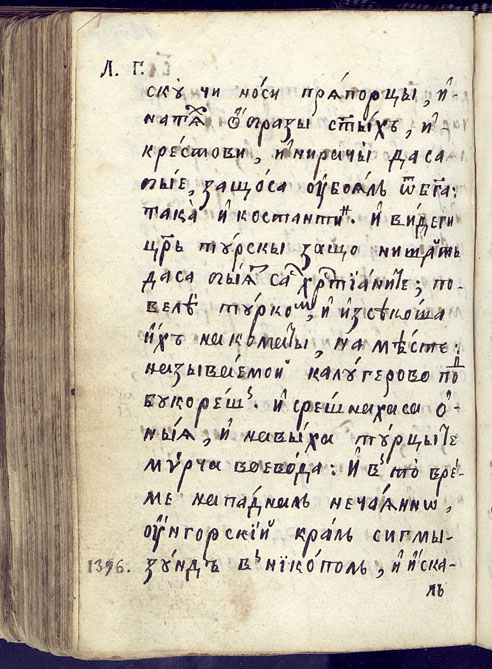 Л. Г.
скꙋ чи носи прѧпорцы, и҆-
ѡ҆бразы ст҃ыхъ, и҆
крестови, и҆ ниращы даса
бїе, защоса оу҆боѧлъ ѿ бг҃а:
така и҆ костантинъ. и҆ видеги
цр҃ь тꙋрски защо нищатъ
даса бїѧтъ са хрⷭ҇тїѧните; по-
велѣ тꙋркомъ, и҆ изсѣкоша
и҆хъ на коматы, на мѣсть:
називаемой калꙋгерово по
бꙋкорещъ. и҆ срещнахаса ѻ҆-
ныѧ, и҆ навыха тꙋрцыте
мѵрча воевода: и҆ въ то вре-
ме нападналъ нечаѧннѡ,
оу҆нгорскїй кралъ сигмы-
1396. зꙋндъ въ нїкополь, и҆ и҆ска-
лъ